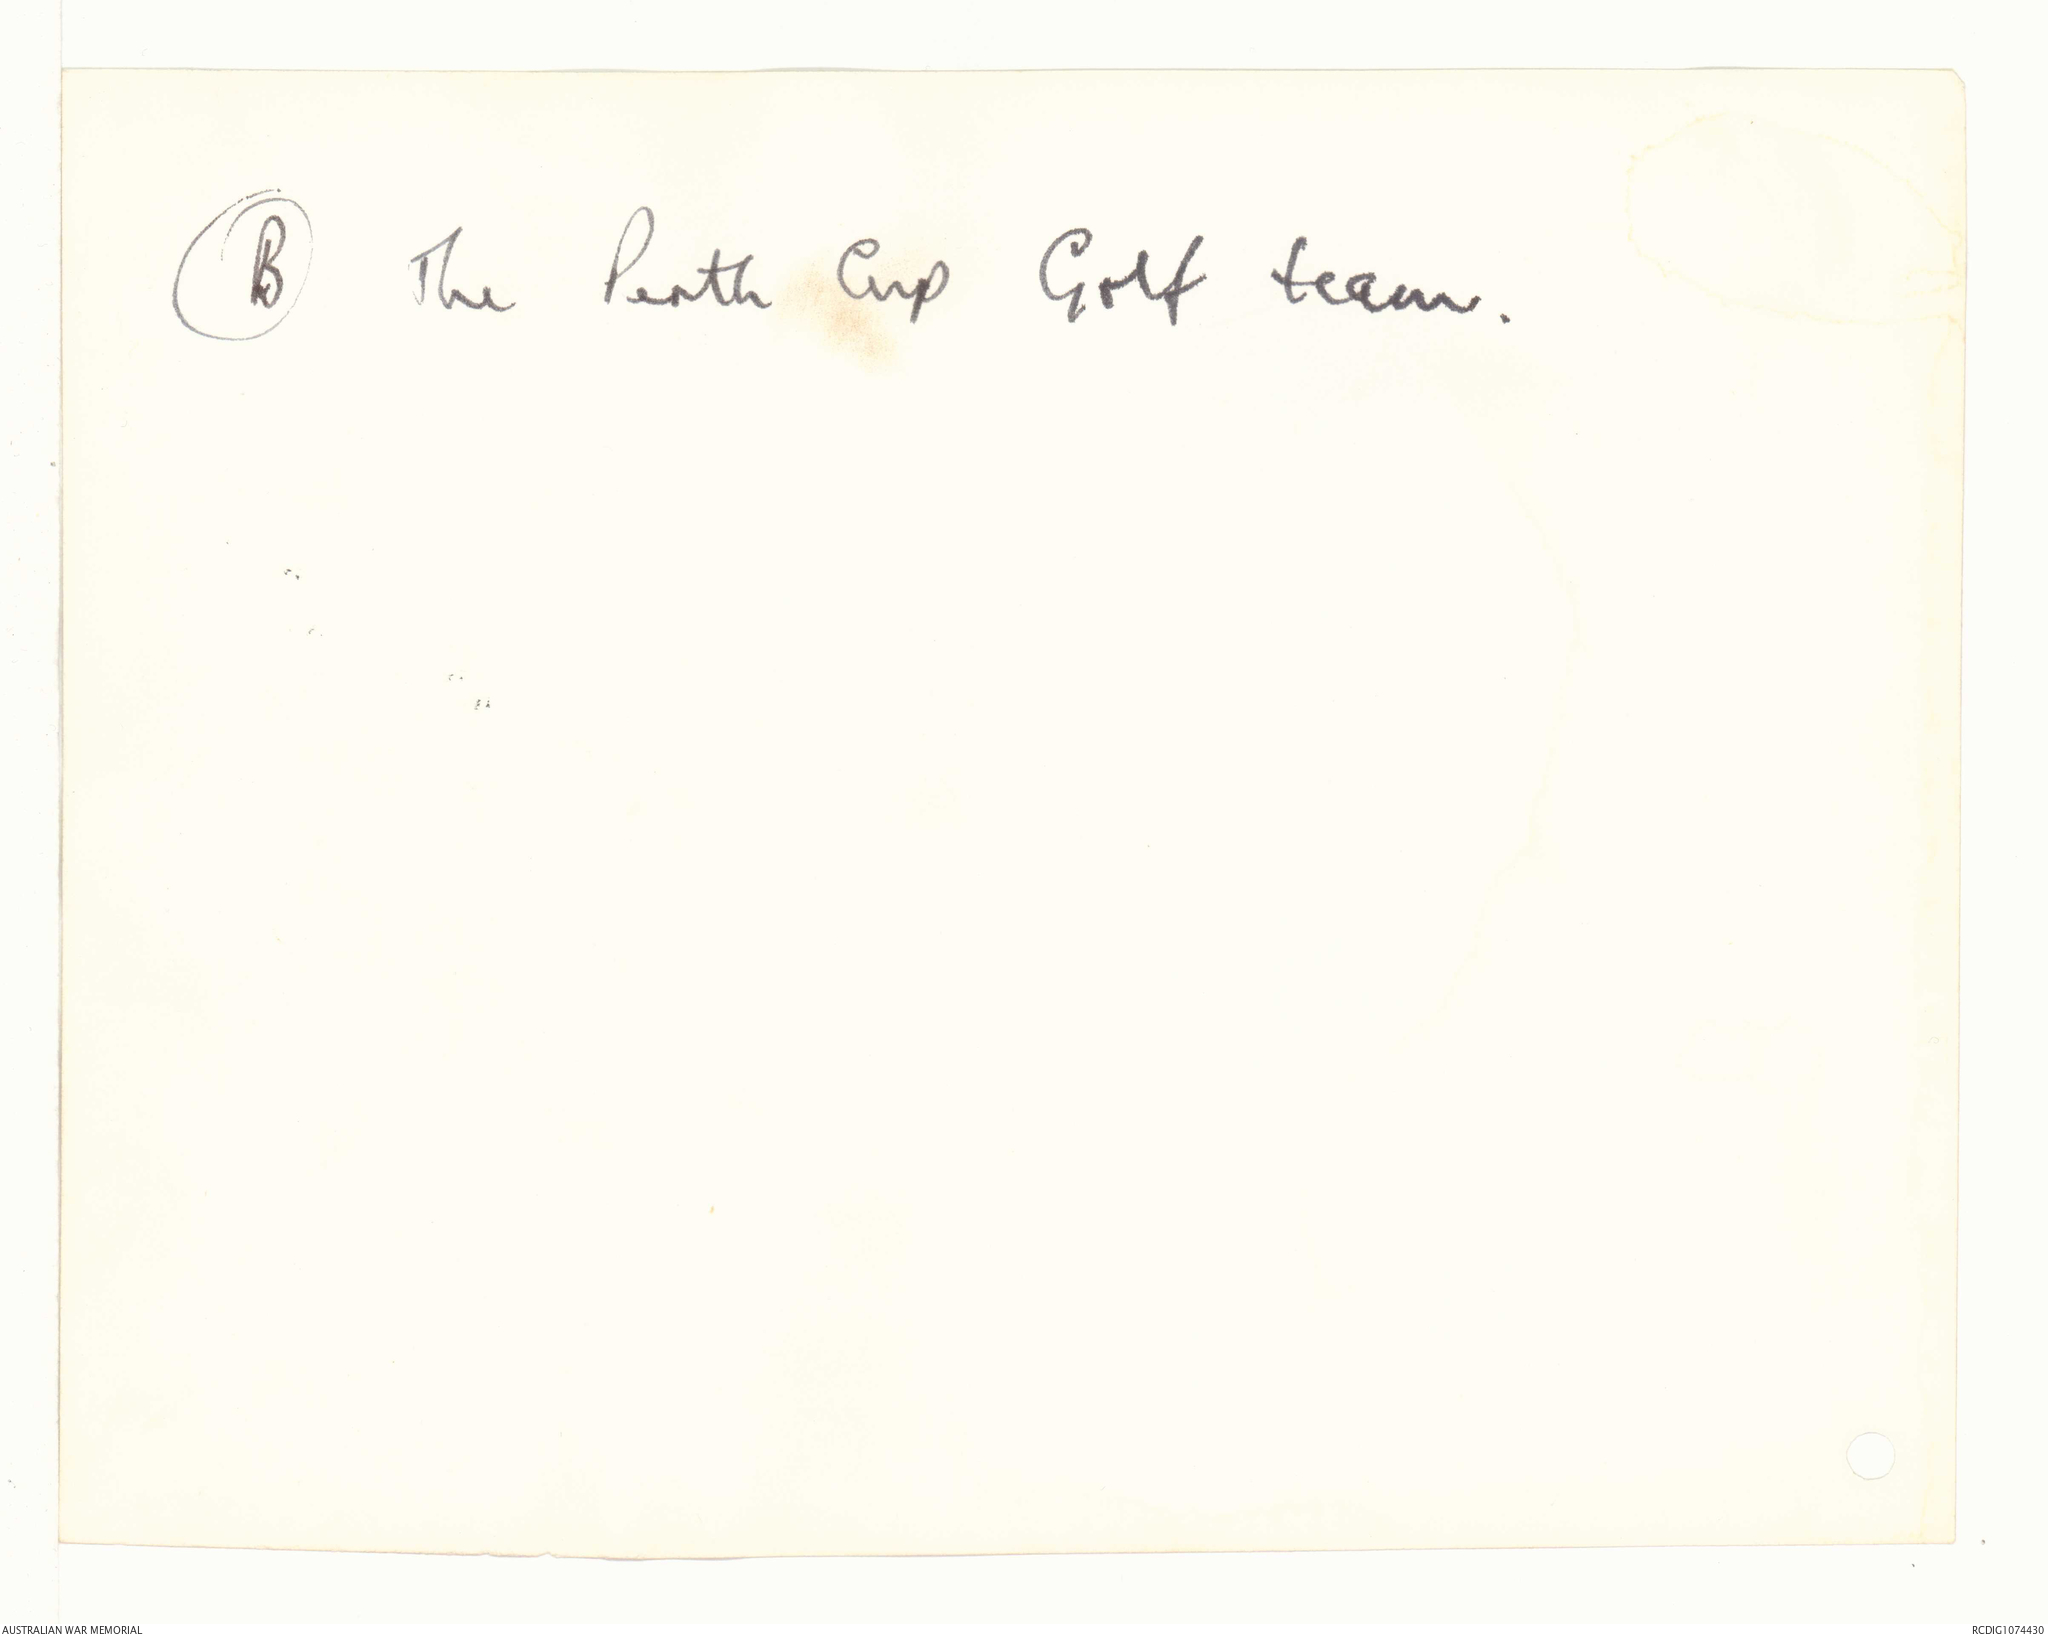 B The Perth Cup Golf team.
AUSTRALIAN WAR MEMORIAL
RCDIG1074430